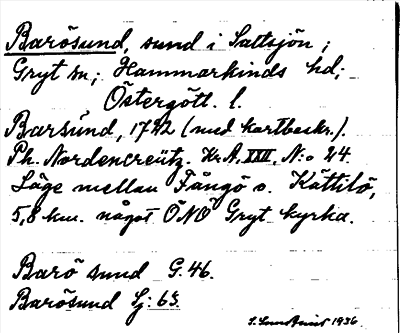 Barösund, sund i Saltsjön;
Gryt sn; Hammarkinds hd;
Östergötl. l.
Barsund, 1722 (med kartbeskr.).
Ph. Nordencreütz. Kr.A. XXII, N:o 24.
Läge mellan Fångö o. Kättilö,
5,8 km. något ÖNÖ Gryt kyrka.
Barö sund G. 46.
Barösund Sj: 63.
1936